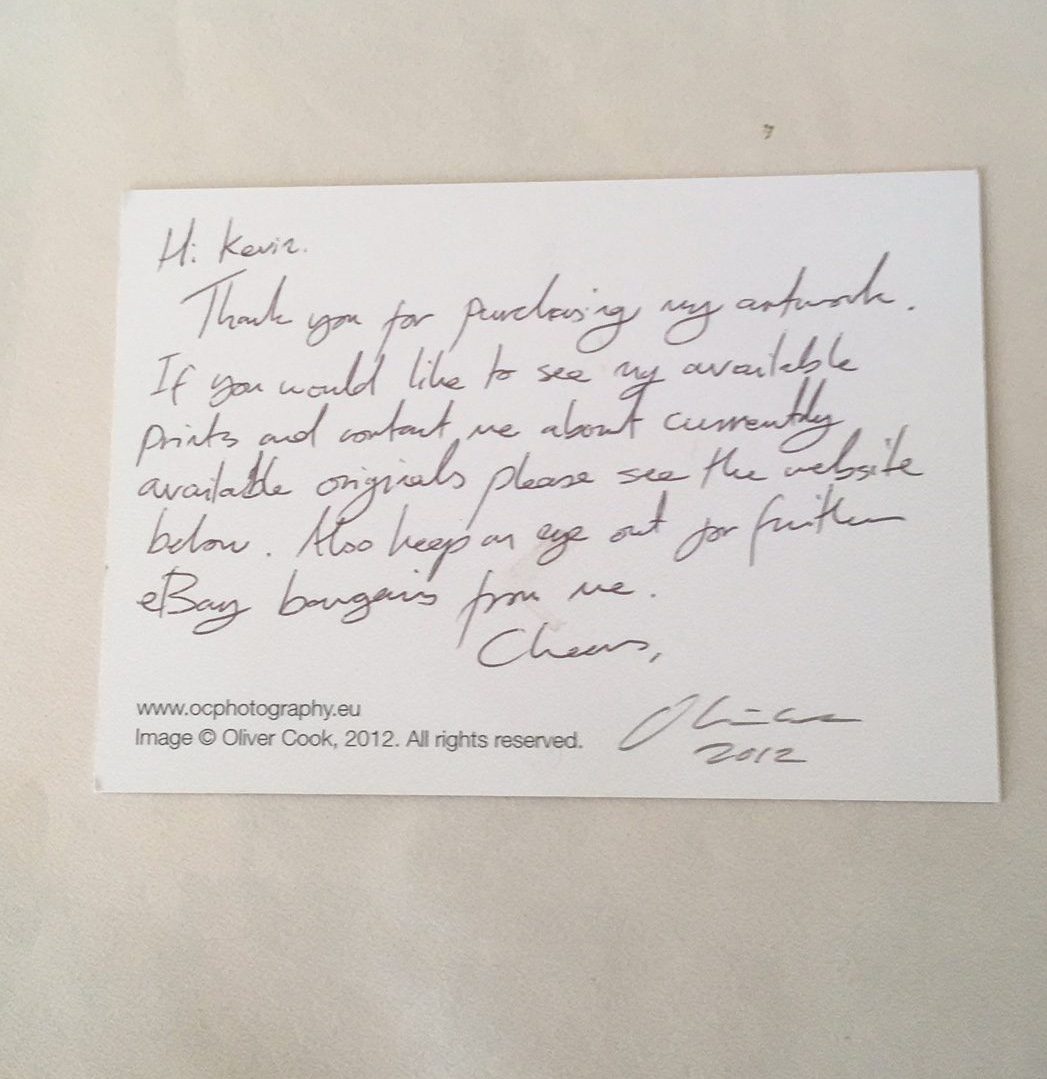 Hi Kevin.
Thank you for purchasing my artwork.
If you would like to see my available
prints and contact me about currently
available originals please see the website
below. Also keep an eye out for further
eBay bargains from me.
Cheers,
www.ocphotography.eu
Image © Oliver Cook, 2012. All rights reserved.
Oliver
2012